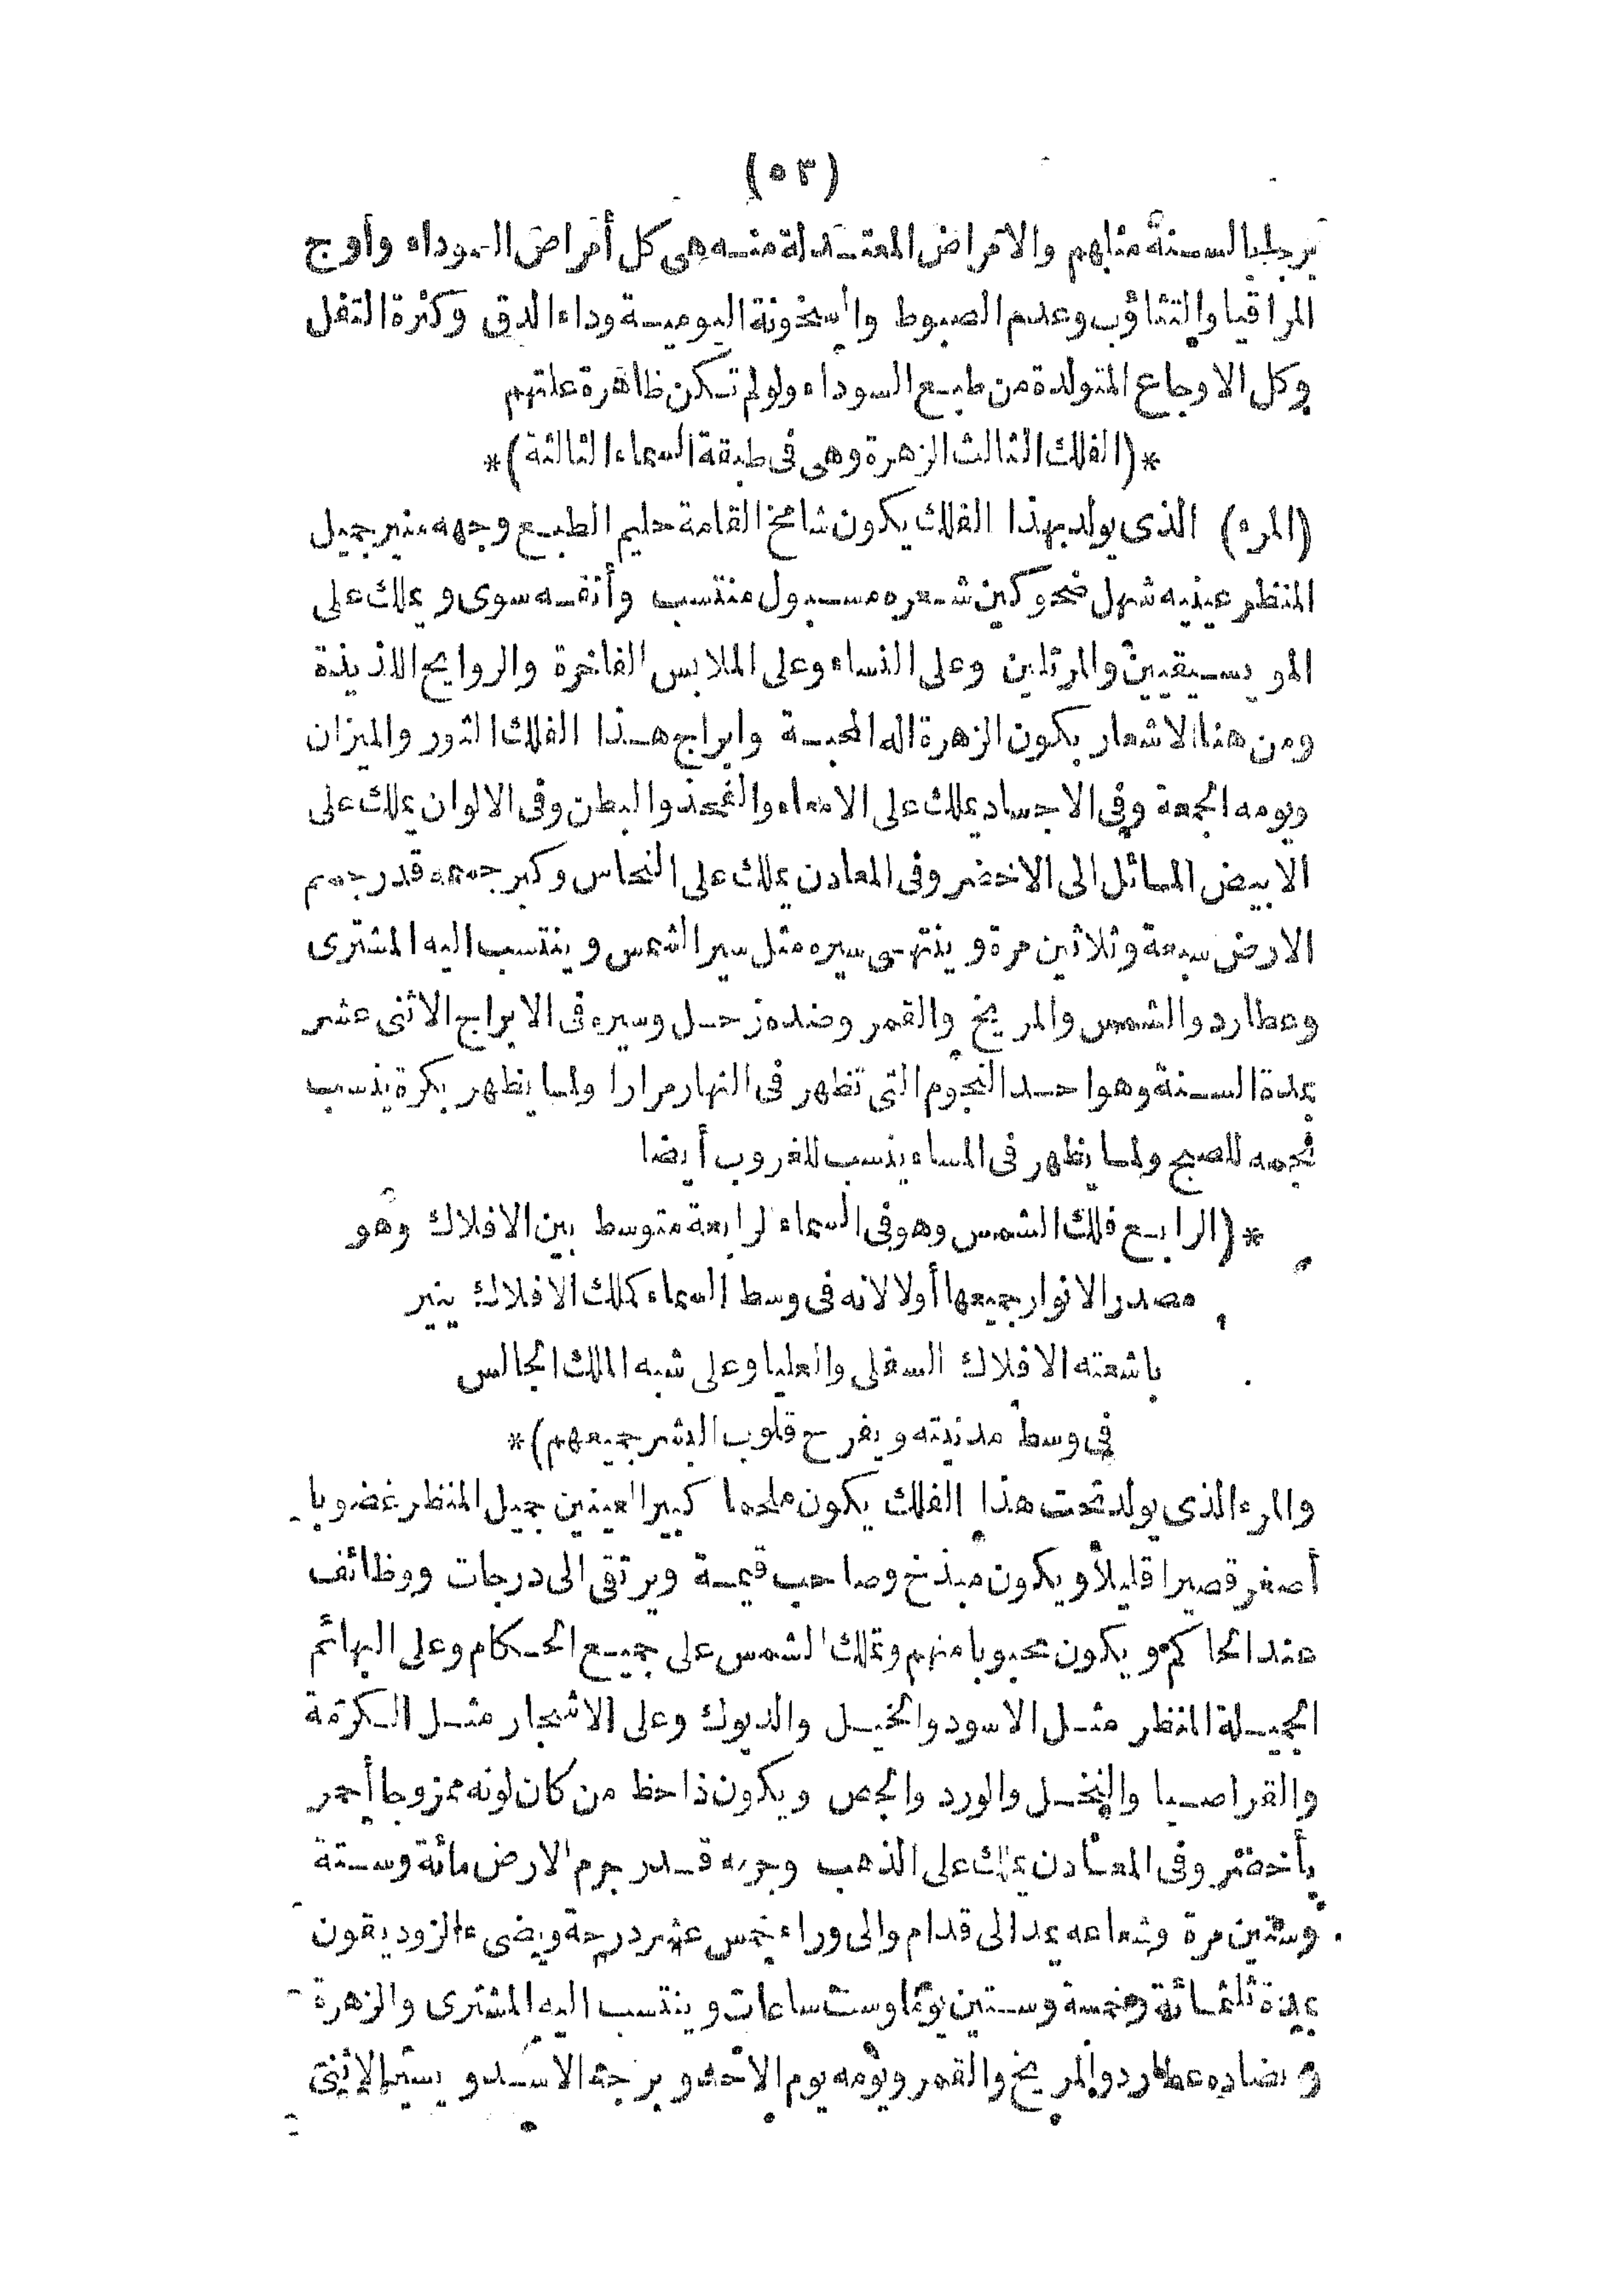 (٥٣)
برجليا لسنة مثلهم والامراض المعتدلة منه هى كل أمراض السوداء وأوج
المراقيا والتثاؤب وعدم الصبوط والسخونة اليومية وداء الدق وكثرة التفل
وكل الاوجاع المتولدة من طبع السوداء ولو لم تكن ظاهرة علتهم
*(الفلك الثالث الزهرة وهى فى طبقة السماء الثالثة)*
(المرء) الذى يولد بهذا الفلك يكون شامخ القامة حليم الطبع وجهه منير جميل
المنظر عينيه شهل ضحوكين شعره مسبول منتسب وأنفه سوى ويملك على
المويسيقيين والمرتلين وعلى النساء وعلى الملابس الفاخرة والروايح اللذيذة
ومن هنا الاشعار بكون الزهرة اله المحبة وابراج هذا الفلك الثور والميزان
ويومه الجمعة وفى الاجساد يملك على الامعاء والفخذ والبطن وفى الالوان يملك على
الابيض المائل الى الاخضر وفى المعادن يملك على النحاس وكبر جسمه قدر جسم
الارض سبعة وثلاثين مرة وينتهى سيره مثل سير الشمس وينتسب اليه المشترى
وعطارد والشمس والمريخ والقمر وضده زحل وسيره فى الابراج الاثنى عشر
بمدة السنة وهو احد النجوم التى تظهر فى النهار مرارا ولما يظهر بكرة ينسب
نجمه للصبح ولما يظهر فى المساء ينسب للغروب أيضا
*(الرابع فلك الشمس وهو فى السماء الرابعة متوسط بين الافلاك وهو
مصدر الانوار جميعها أولا لانه فى وسط السماء كملك الافلاك ينير
باشعته الافلاك السفلى والعليا وعلى شبه الملك الجالس
فى وسط مدينته ويفرح قلوب البشر جميعهم)*
والمرء الذى يولد تحت هذا الفلك يكون ملحما كبير العينين جميل المنظر غضوبا
أصغر قصيرا قليلا ويكون مبذخ وصاحب قيمة ويرتقى الى درجات ووظائف
عند الحاكم ويكون محبوبا منهم وتملك الشمس على جميع الحكام وعلى البهائم
الجميلة المنظر مثل الاسود والخيل والديوك وعلى الاشجار مثل الكرمة
والقراصيا والنخل والورد والحمص ويكون ذا حظ من كان لونه ممزوجا أحمر
بأخضر وفى المعادن يملك على الذهب وجرمه قدر جرم الارض مائة وستة
وستين مرة وشعاعه يمد الى قدام والى وراء خمس عشر درجة ويضىء الزوديقون
بمدة ثلثمائة وخمسة وستين يوما وست ساعات وينتسب اليه المشترى والزهرة
ويضاده عطارد والمريخ والقمر ويومه يوم الاحد وبرجه الاسد ويسير الاثنى